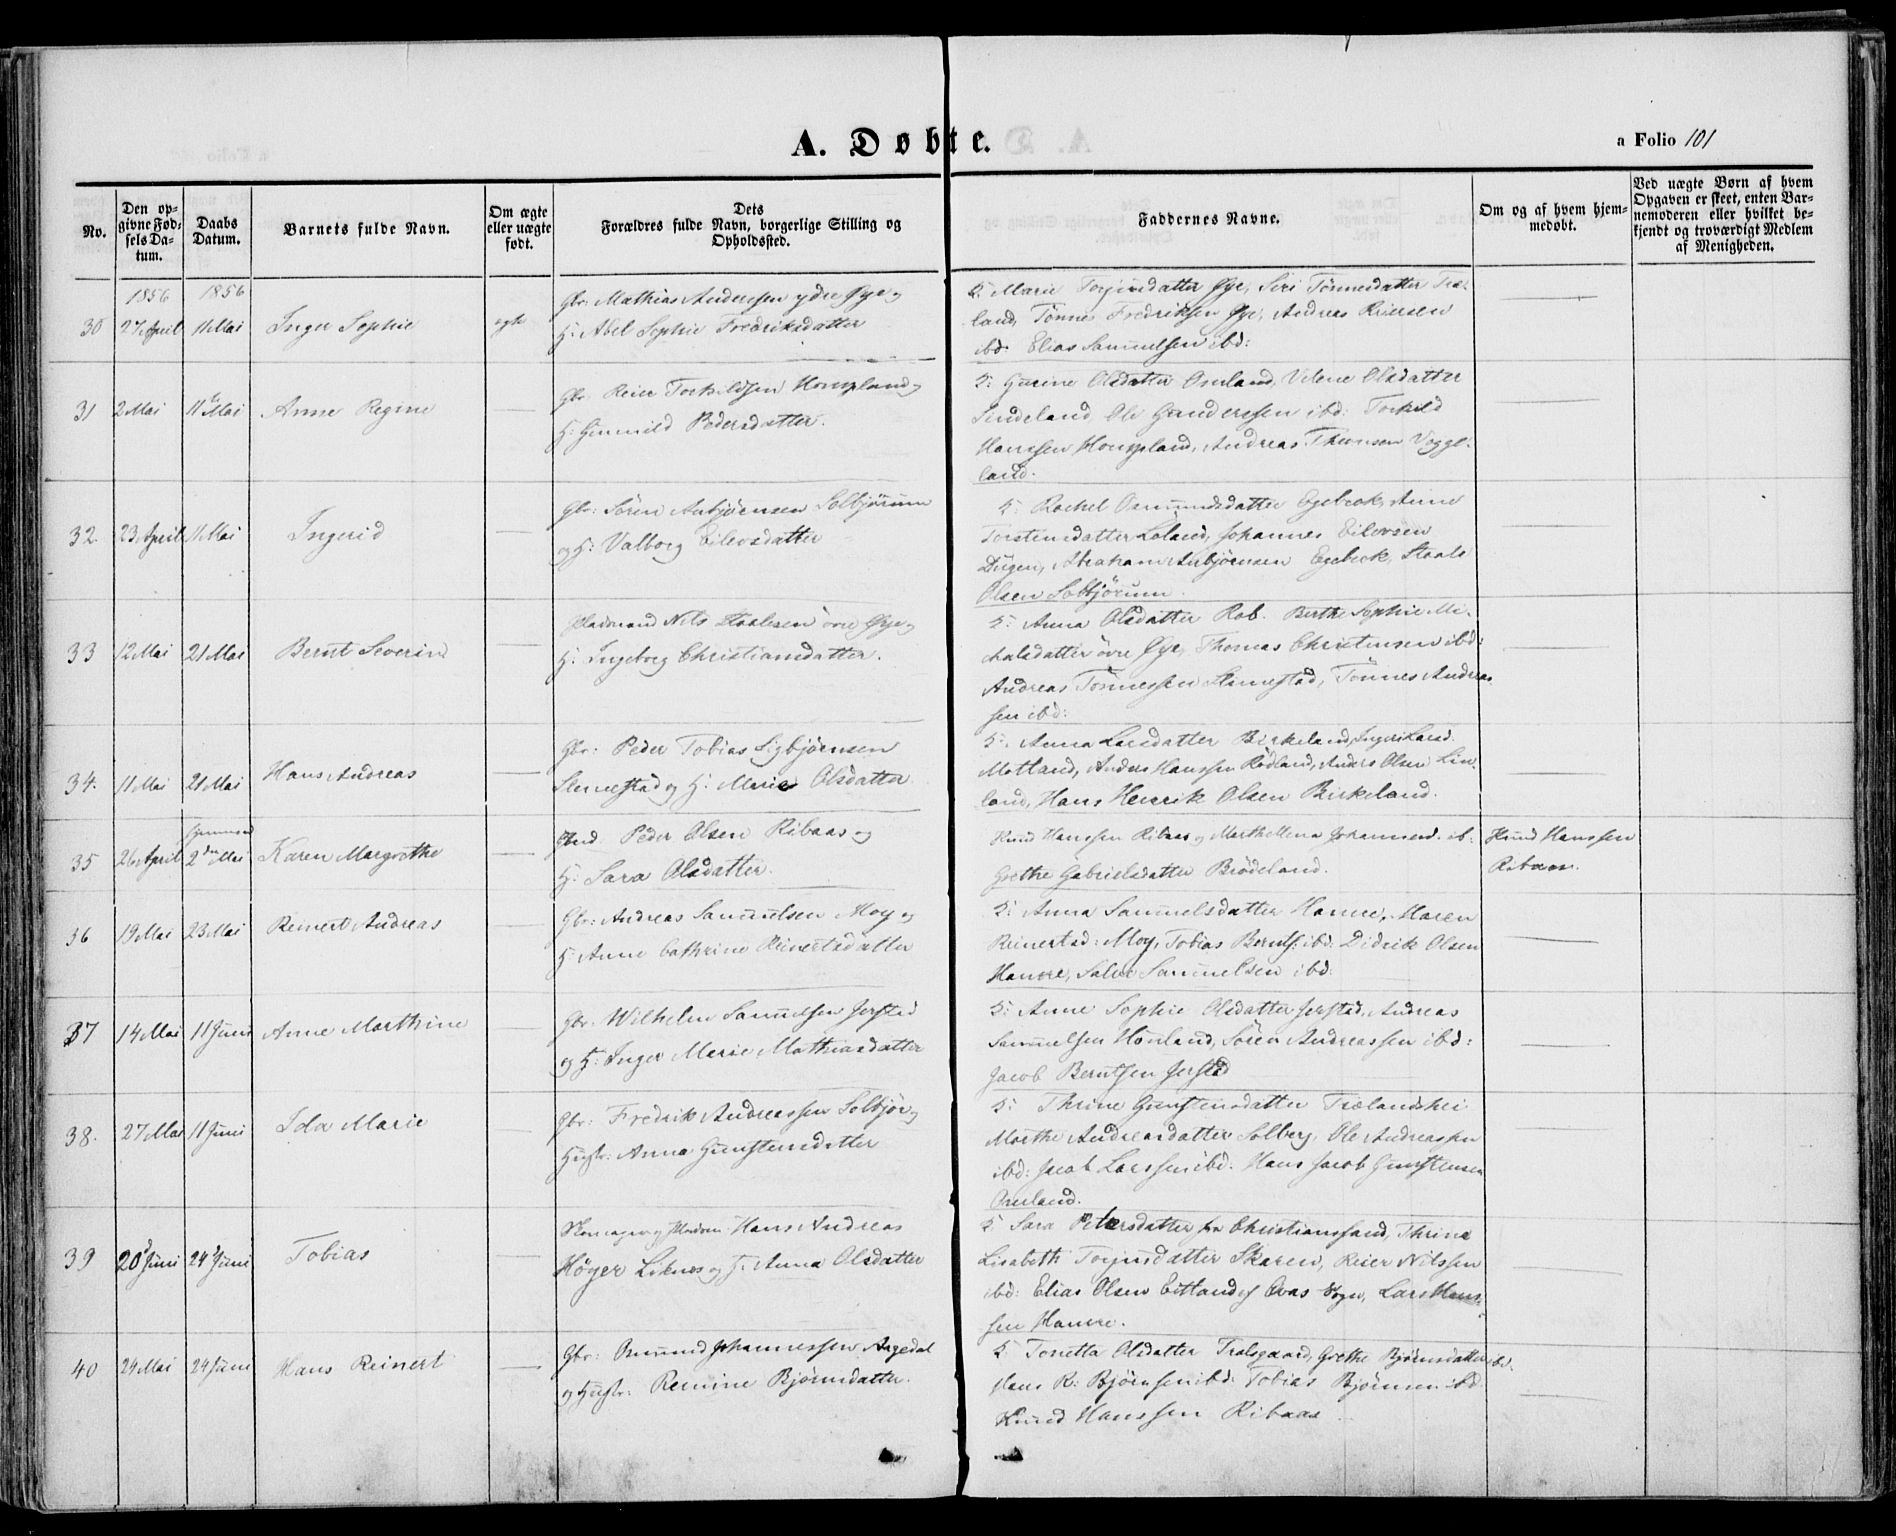 A. Døbte.
a Folio 101
No.
Den op-
givne Fød-
sels Da-
tum.
Daabs
Datum.
Barnets fulde Navn.
Om ægte
eller uægte
født.
Dets
Forældres fulde Navn, borgerlige Stilling og
Opholdssted.
Faddernes Navne.
Om og af hvem hjem-
medøbt.
Ved uægte Børn af hvem
Opgaven er skeet, enten Bar-
nemoderen eller hvilket be-
kjendt og troværdigt Medlem
af Menigheden.
1856 1856
30 27 April 11 Mai Inger Sophie egte
Gbr: Mathias Anderssen ydre Øye og
H: Abel Sophie Fredriksdatter
F: Marie Torjusdatter Øye, Siri Tønnesdatter Træ-
land, Tønnes Fredriksen Øye, Andreas Reiersen
ibd: Elias Samuelsen ibd:
31 2 Mai 11te Mai Anne Regine
Gbr. Reier Torkildsen Houpland og
H: Gunnild Pedersdatter.
F: Gurine Olsdatter Omland, Velene Olsdatter
Sindeland, Ole Gunderssen ibd: Torkild
Hanssen Houpland, Andreas Thomsen Vogge-
land.
32. 23 April 11 Mai Ingerid
Gbr: Sören Anbjörnsen Solbjörum
og H: Valborg Eilevsdatter
F: Rachel Osmundsdatter Egebæk, Anne
Torstensdatter Loland, Johannes Eilevsen
Dugen, Abraham Anbjörnsen Egebæk, Staale
Olsen Solbjörum.
33 12 Mai 21 Mai Bernt Severin
Pladsmand Nils Staalesen övre Øye og
H: Ingeborg Christiansdatter.
F: Anna Olsdatter Rob. Berthe Sophie Mi-
kalsdatter övre Øye, Thomas Christensen ibd:
Andreas Tönnessen Slimestad, Tönnes Andreas-
sen ibd:
34. 11 Mai 21 Mai Hans Andreas
Gbr: Peder Tobias Sigbjörnsen
Slimestad og H: Marie Olsdatter
F: Anna Larsdatter Birkeland, Inger Larsd.
Motland, Anders Hanssen Rödland, Anders Olsen Lin-
land, Hans Henrik Olsen Birkeland.
35 26 April 2den Mai Karen Margrethe
Ind. Peder Olsen Ribaas og
H: Sara Olsdatter.
Knud Hanssen Ribaas og Marthe Johannesd. ib:
Grethe Gabrielsdatter Brödeland.
Knud Hanssen
Ribaas.
36 19 Mai 23 Mai Reinert Andreas
Gbr: Andreas Samuelsen Moy og
H: Anne Cathrine Reinertsdatter
F: Anna Samuelsdatter Hamre, Maren
Reinertsd: Moy, Tobias Berntss: ibd: Didrik Olsen
Hamre, Salve Samuelsen ibd:
37 14 Mai 11 Juni Anne Marthine
Gbr. Wilhelm Samuelsen Jerstad
og H: Inger Marie Mathiasdatter
F: Anne Sophie Olsdatter Jerstad, Andreas
Samuelsen Hönland, Sören Andreassen ibd:
Jacob Berntsen Jerstad
38. 27 Mai 11 Juni Ida Marie
Gbr: Fredrik Andreassen Solbjör og
Hustr: Anna Gunstensdatter
F: Thrine Gunstensdatter Trælandshei
Marthe Andreasdatter Solberg, Ole Andreassen
ibd: Jacob Larssen ibd: Hans Jacob Gunstensen
Omland.
39 20de Juni 24de Juni Tobias
Hans Andreas
Höyer Liknes og H: Anna Olsdatter
F Sara Petersdatter fra Christianssand, Thrine
Lisabeth Torjusdatter Skaren, Reier Nilssen
ibd: Elias Olsen Eitland af Qvas Sogn, Lars Hans-
sen Hamre.
40 24 Mai 24 Juni Hans Reinert
Gbr: Omund Johannessen Aagedal
og Hustr: Remine Björnsdatter.
F Tonetta Olsdatter Tralsgaard, Grethe Björnsdatter ibd.
Hans R: Björnsen ibd: Tobias Björnsen ibd:
Knud Hanssen Ribaas